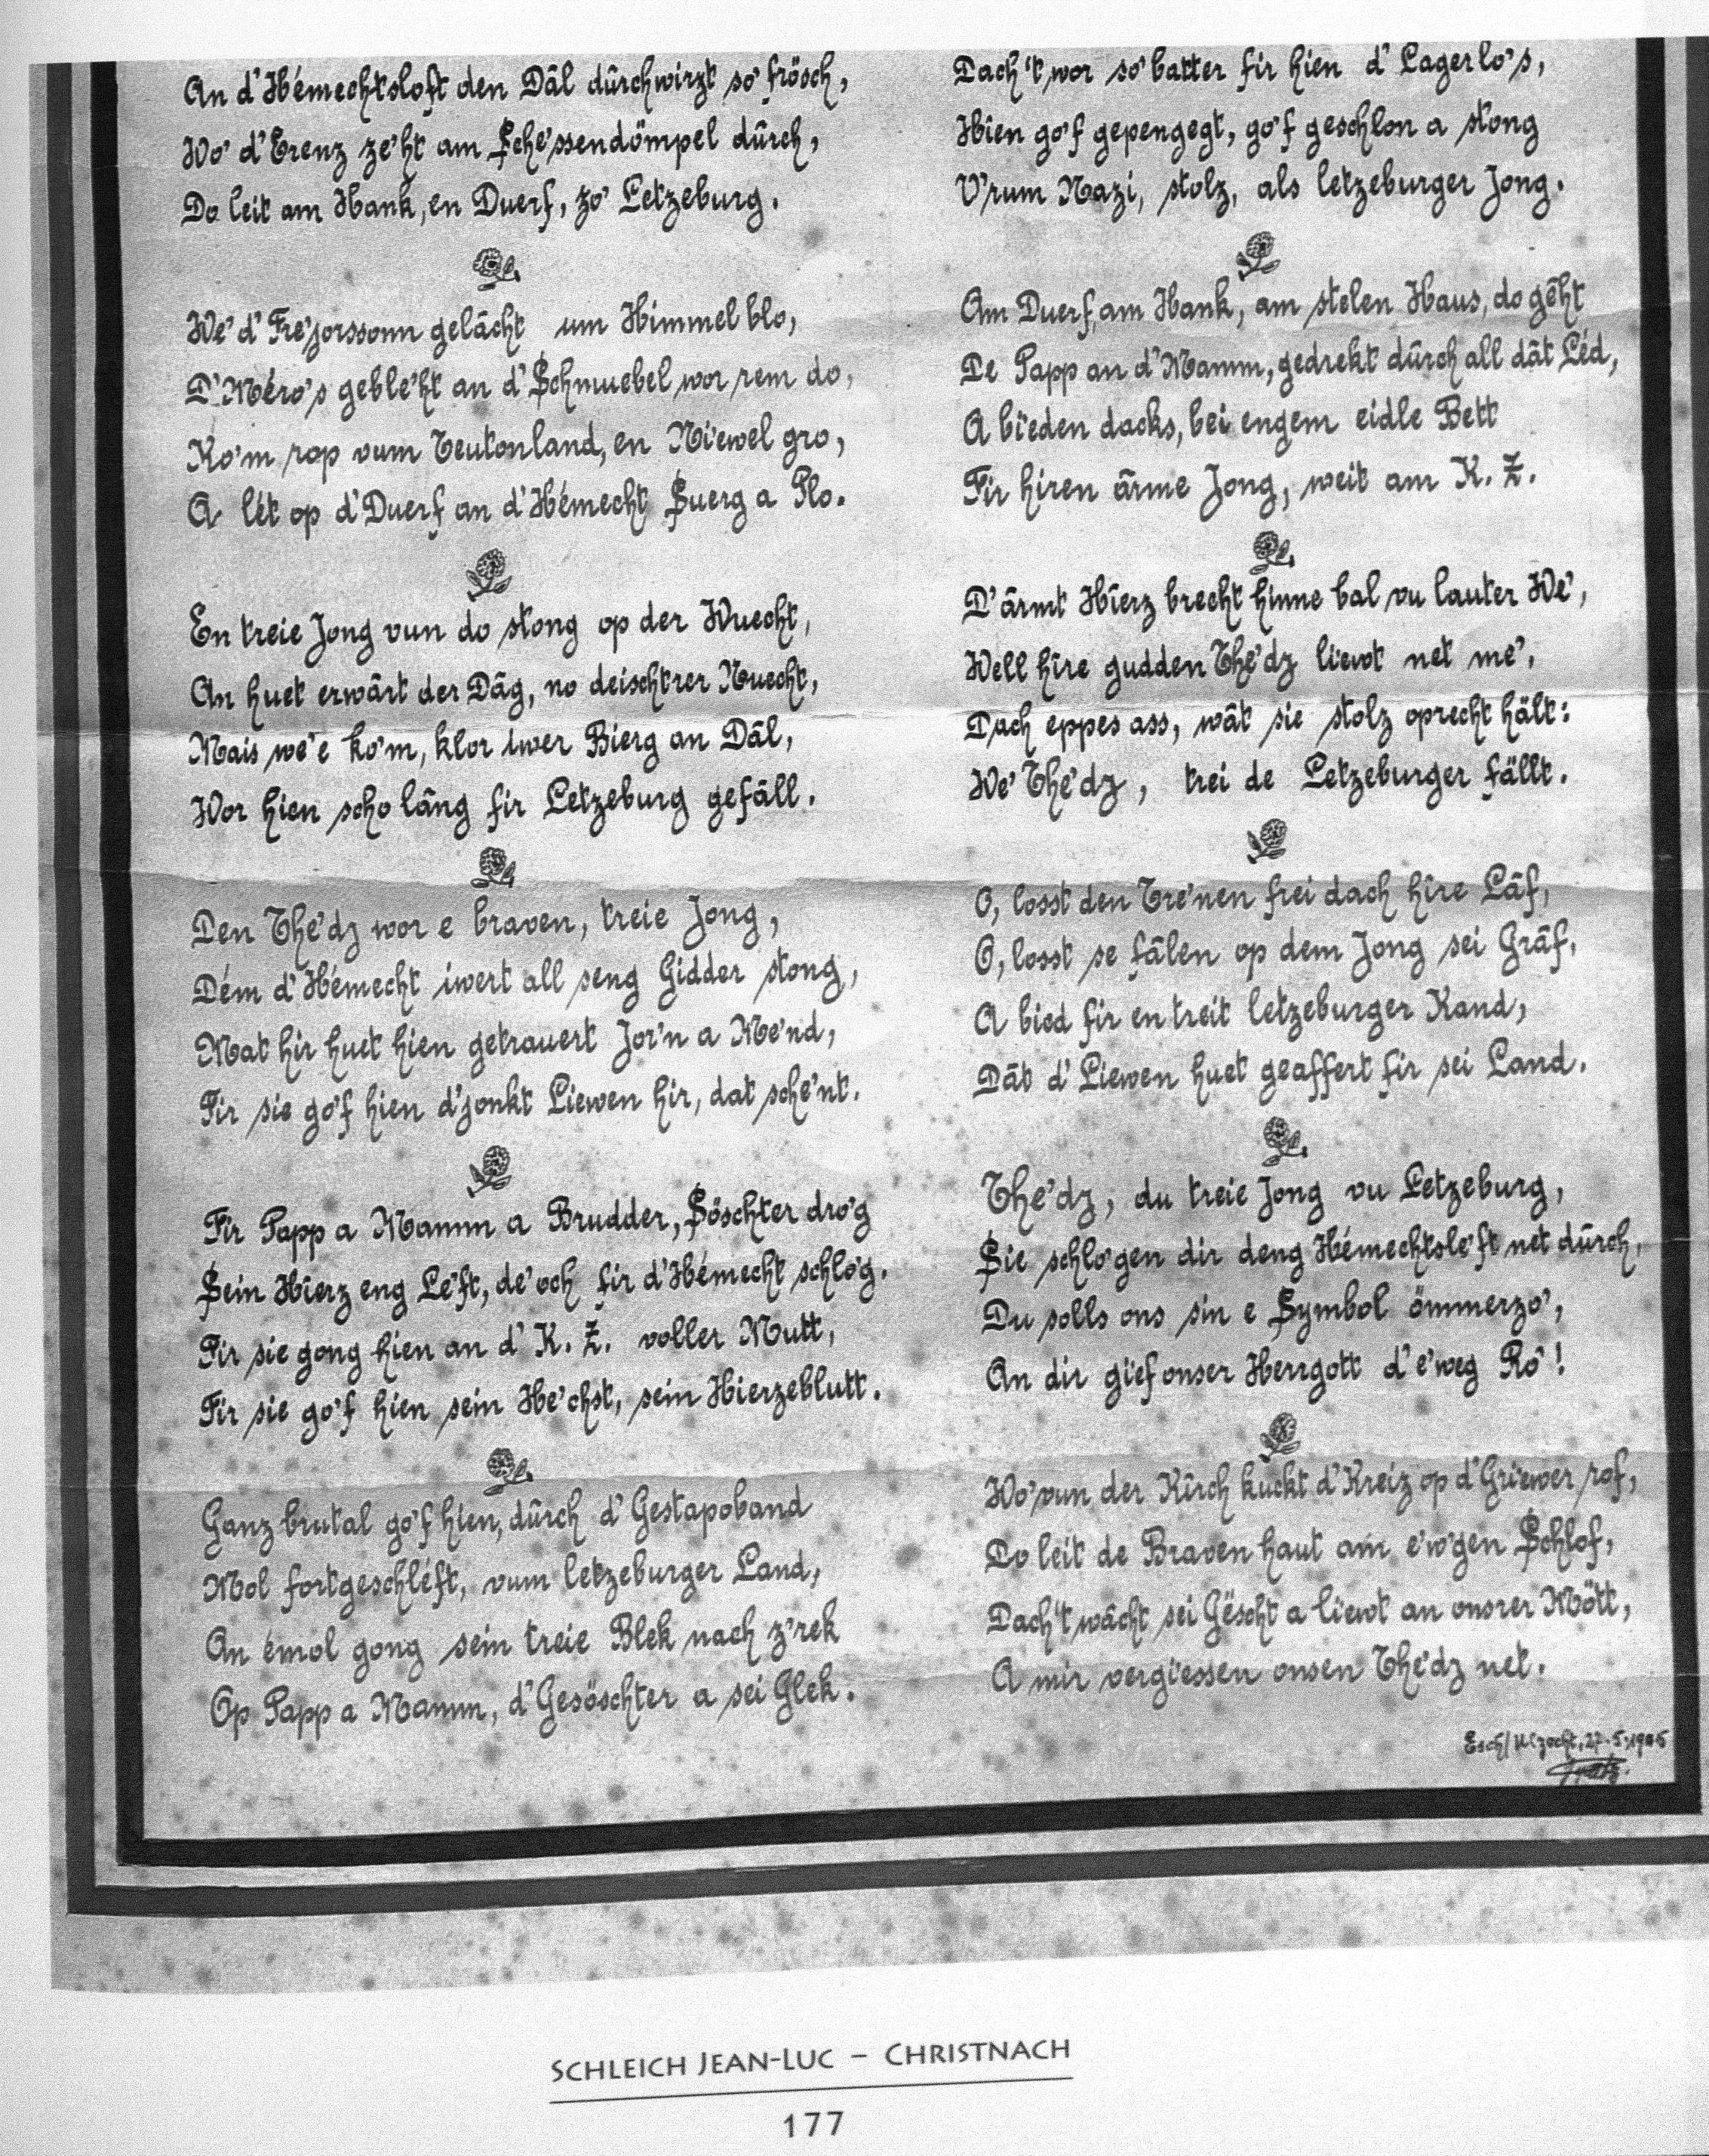 An d'Hémechtsloft den Dâl dûrchwirzt so' frösch,
Wo' d'Erenz ze'ht am Sche'ssendömpel dûrch,
Do leit am Hank, en Duerf, zo' Letzeburg.
We' d'Fre'jorssonn gelächt um Himmel blo,
D'Méro's geble'ht an d'Schmuebel wor rem do,
Ko'm rop vum Teutonland, en Niewel gro,
A lét op d'Duerf an d'Hémecht Suerg a Plo.
En treie Jong vun do stong op der Wuecht,
An huet erwârt der Dâg, no deischtrer Nuecht,
Mais we'e ko'm, klor iwer Bierg an Dâl,
Wor hien scho lâng fir Letzeburg gefäll.
Den The'dz wor e braven, treie Jong,
Dém d'Hémecht iwert all seng Gidder stong,
Mat hir huet hien getrauert Jor'n a Me'nd,
Fir sie go'f hien d'jonkt Liewen hir, dat sche'nt.
Fir Papp a Mamm a Brudder, Söschter dro'g
Sein Hierz eng Le'ft, de' och fir d'Hémecht schlo'g.
Fir sie gong hien an d' K. Z. voller Mutt,
Fir sie go'f hien sein He'chst, sein Hierzeblutt.
Ganz brutal go'f hien, dûrch d' Gestapoband
Mol fortgeschléft, vum letzeburger Land,
An émol gong sein treie Blek nach z'rek
Op Papp a Mamm, d'Gesöschter a sei Glek.
Dach 't wor so' batter fir hien d' Lagerlo's,
Hien go'f gepengegt, go'f geschlon a stong
V'rum Nazi, stolz, als letzeburger Jong.
Am Duerf, am Hank, am stelen Haus, do gëht
De Papp an d'Mamm, gedrekt dûrch all dât Léd,
A bieden dacks, bei engem eidle Bett
Fir hiren ârme Jong, weit am K. Z.
D'ärmt Hierz brecht hinne bal vu lauter We',
Well hîre gudden The'dz liewt net me',
Dach eppes ass, wât sie stolz oprecht hält:
We' The'dz, trei de Letzeburger fällt.
O, losst den Tre'nen frei dach hîre Lâf,
O, losst se fâlen op dem Jong sei Grâf,
A bied fir en treit letzeburger Kand,
Dât d' Liewen huet geaffert fir sei Land.
The'dz, du treie Jong vu Letzeburg,
Sie schlo'gen dir deng Hémechtsle'ft net dûrch,
Du solls ons sin e Symbol ömmerzo',
An dir gief onser Herrgott d'e'weg Ro'!
Wo' vun der Kîrch kuckt d'Kreiz op d'Griewer rof,
Do leit de Braven haut am e'w'gen Schlof,
Dach 't wâcht sei Gëscht a liewt an onsrer Mött,
A mir vergiessen onsen The'dz net.
Esch/Uelzecht, 27.5.
SCHLEICH JEAN-LUC – CHRISTNACH
177